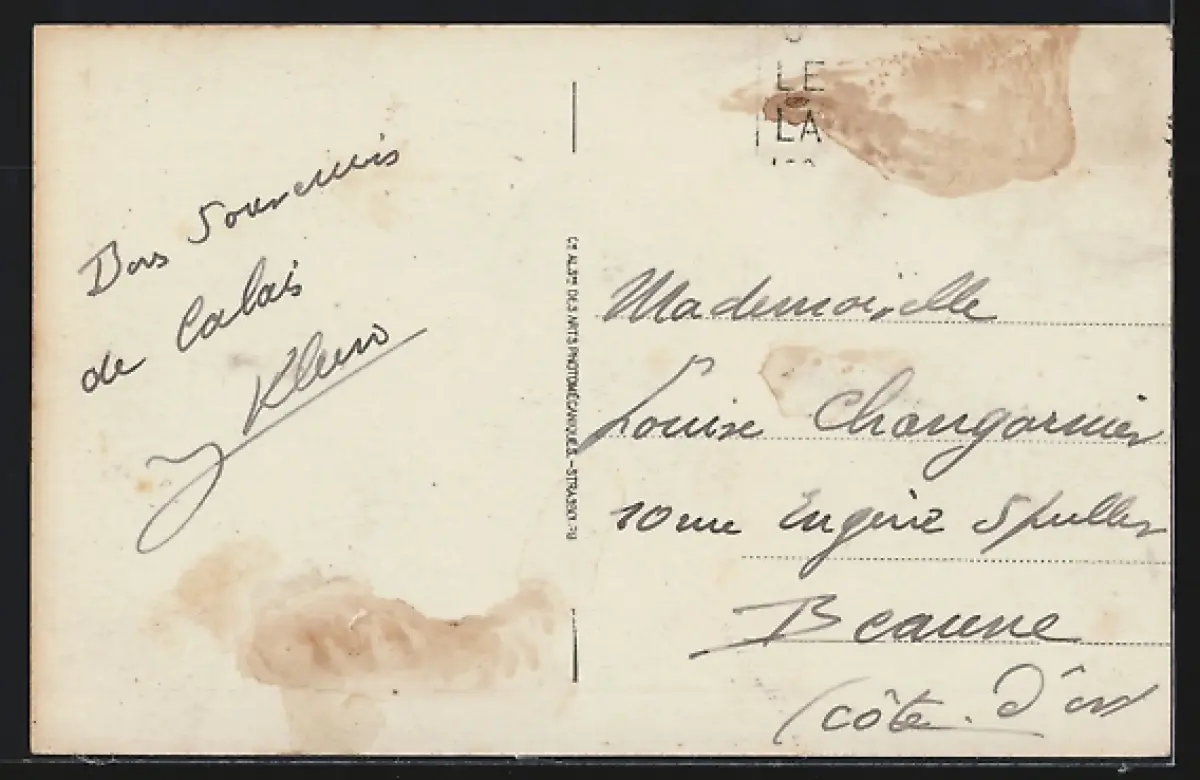 Bons Souvenirs
de Calais
LE
LA
Cie ALSne DES ARTS PHOTOMÉCANIQUES.-STRASBG
Mademoiselle
Louise Changarnier
10 rue Eugène Spuller
Beaune
(Côte. d'or